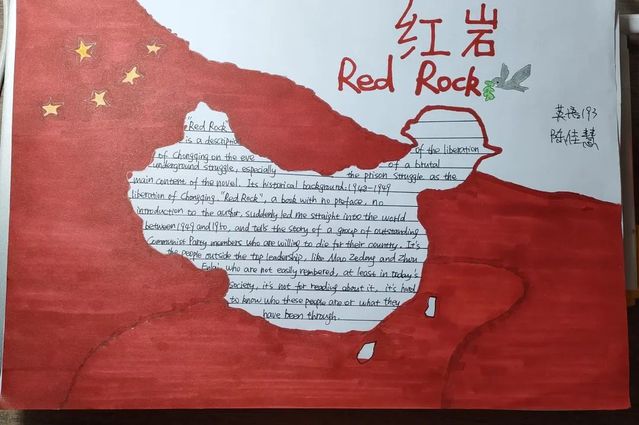 红岩
Red Rock
英语193
陈佳慧
"Red Rock"
is a description of the liberation
of Chongqing on the eve of a brutal
underground struggle, especially the prison struggle as the
main content of the novel. Its historical background 1948-1949
liberation of Chongqing. "Red Rock", a book with no preface, no
introduction to the author, suddenly led me straight into the world
between 1949 and 1950, and tells the story of a group of outstanding
communist Party members who are willing to die for their country. It's
the people outside the top leadership, like Mao Zedong and Zhou
Enlai, who are not easily remembered, at least in today's
society, it's not for reading about it, it's hard
to know who these people are or what they
have been through.